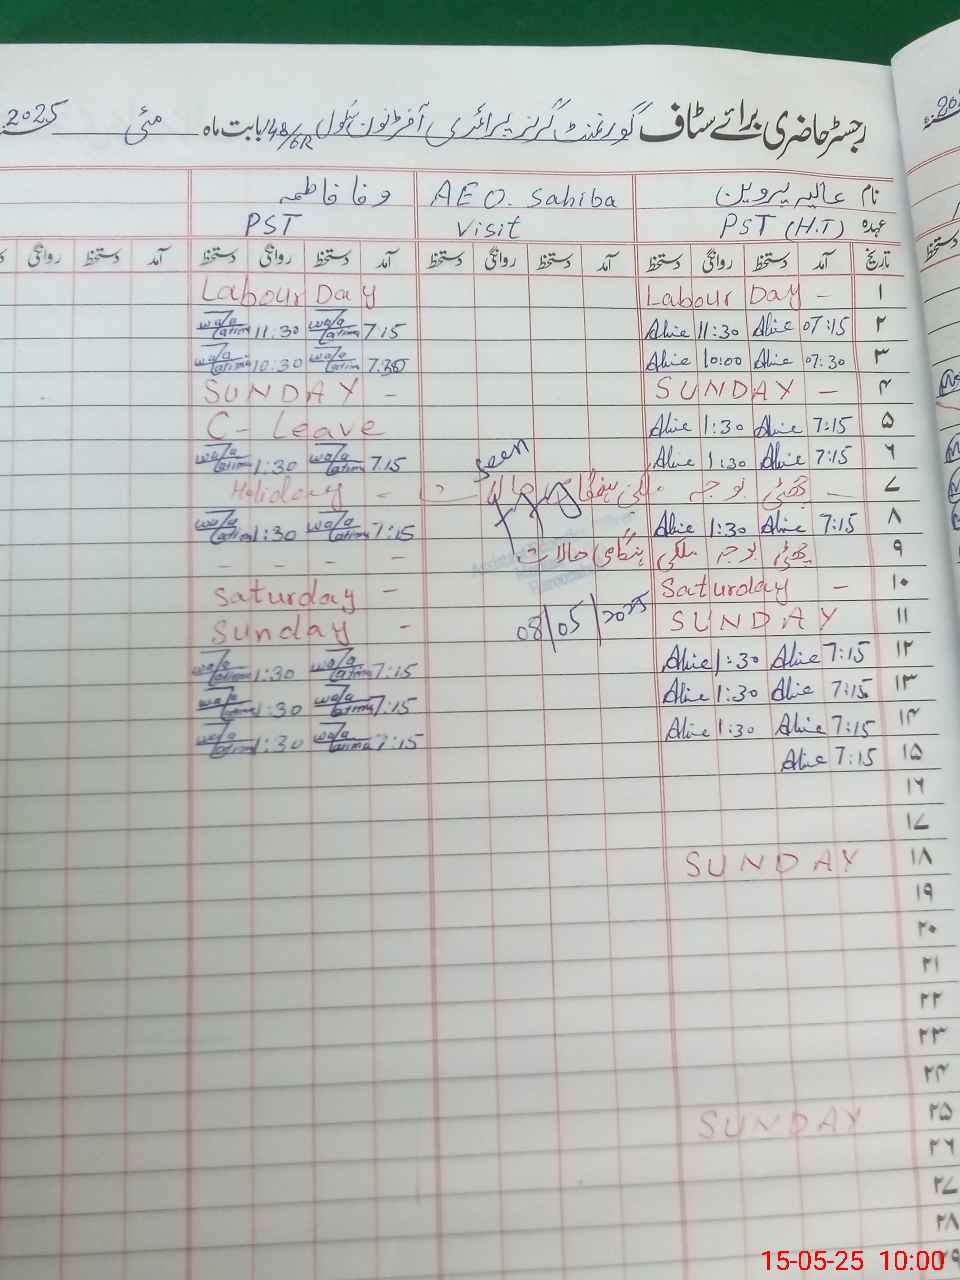 رجسٹر حاضری برائے سٹاف گورنمنٹ گرلز پرائمری آفٹرنون سکول 48/6R بابت ماہ مئی 2025
نام عالیہ پروین AEO. Sahiba وفا فاطمہ
عہدہ PST (H.T) Visit PST
تاریخ آمد دستخط روانگی دستخط آمد دستخط روانگی دستخط آمد دستخط روانگی دستخط آمد دستخط روانگی
۱ Labour Day - Labour Day
۲ 07:15 Alia 11:30 Alia 7:15 Wafa Fatima 11:30 Wafa Fatima
۳ 07:30 Alia 10:00 Alia 7:30 Wafa Fatima 10:30 Wafa Fatima
۴ SUNDAY - SUNDAY -
۵ 7:15 Alia 1:30 Alia C- Leave
۶ 7:15 Alia 1:30 Alia seen 7:15 Wafa Fatima 1:30 Wafa Fatima
۷ چھٹی بوجہ ملکی ہنگامی حالات Holiday -
۸ 7:15 Alia 1:30 Alia 7:15 Wafa Fatima 1:30 Wafa Fatima
۹ چھٹی بوجہ ملکی ہنگامی حالات - - - -
۱۰ Saturday - Saturday -
۱۱ SUNDAY 08/05/2025 Sunday -
۱۲ 7:15 Alia 1:30 Alia 7:15 Wafa Fatima 1:30 Wafa Fatima
۱۳ 7:15 Alia 1:30 Alia 7:15 Wafa Fatima 1:30 Wafa Fatima
۱۴ 7:15 Alia 1:30 Alia 7:15 Wafa Fatima 1:30 Wafa Fatima
۱۵ 7:15 Alia
۱۶
۱۷
۱۸ SUNDAY
۱۹
۲۰
۲۱
۲۲
۲۳
۲۴
۲۵ SUNDAY
۲۶
۲۷
۲۸
۲۹
15-05-25 10:00